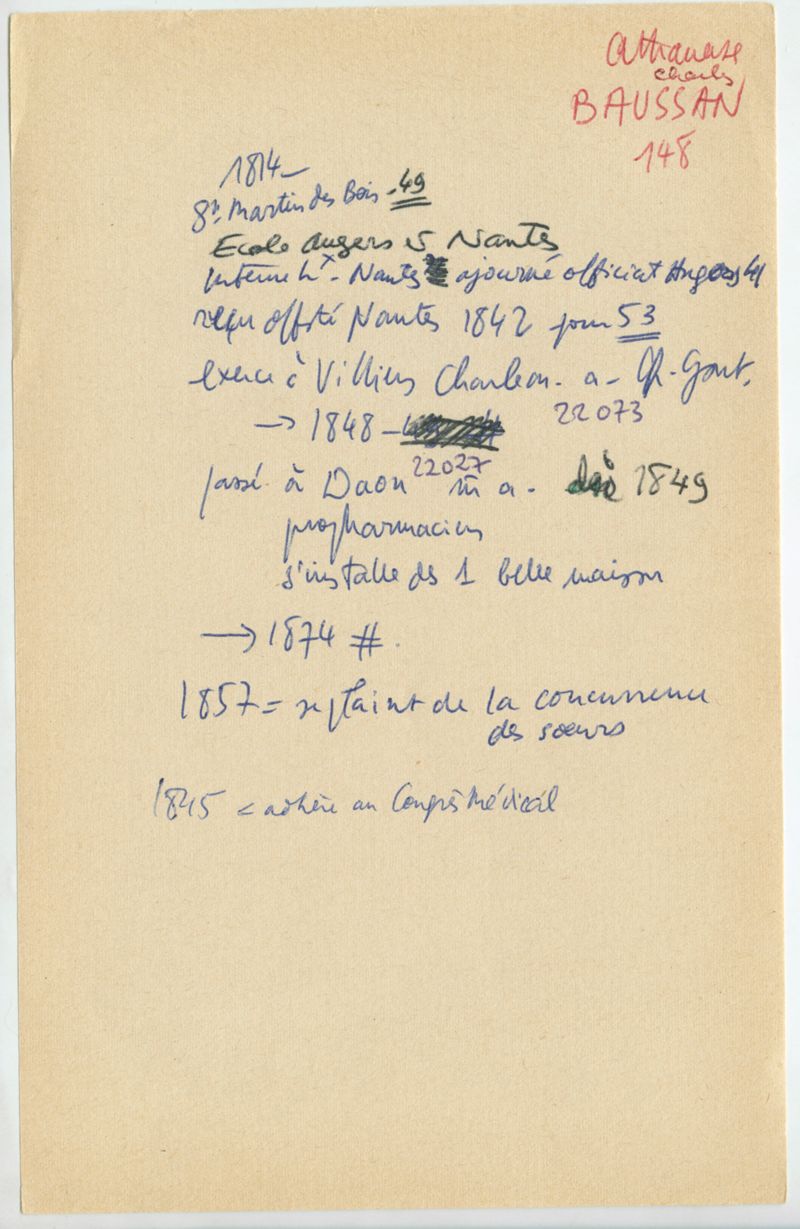 Athanase
Charles
BAUSSAN
148
1814 –
St. Martin des Bois - 49
Ecole Angers et Nantes
interne hx - Nantes ajourné officiat Angers 41
reçu offté Nantes 1842 pour 53
exerce à Villiers Charlem. a - Ch - Gont.
22 073
→ 1848 –
22027
passé à Daon m a - 1849
propharmacien
s'installe ds 1 belle maison
→ 1874 #.
1857 = se plaint de la concurrence
des sœurs
1845 = adhère au Congrès Médical